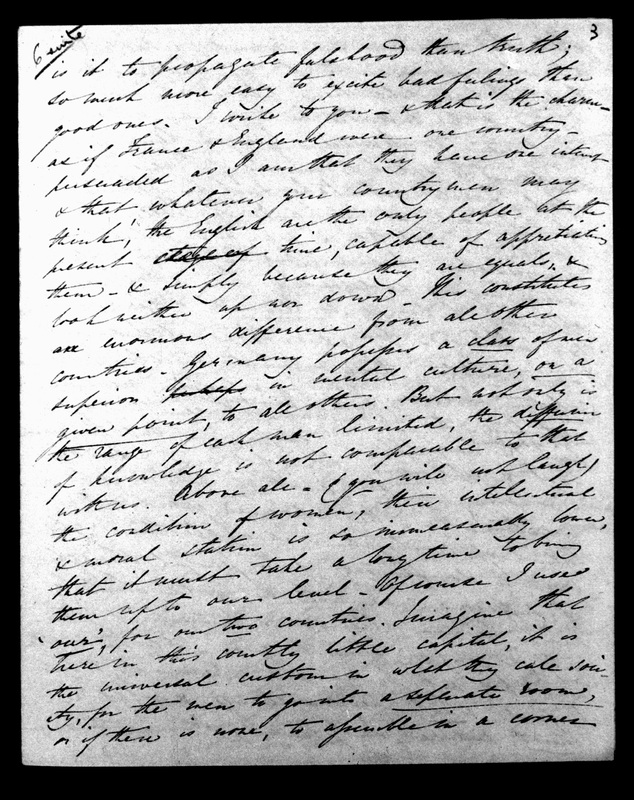 3
6 suite
is it to propagate falshood than truth;
so much more easy to excite bad feelings than
good ones. I write to you – & that is the charm –
as if France & England were one country –
persuaded as I am that they have one interest
& that whatever your countrymen may
think, the English are the only people at the
present time, capable of appretiating
them – & simply because they are equals, &
look neither up nor down – This constitutes
an enormous difference from all other
countries – Germany possesses a class of men
superior in mental culture, on a
given point, to all others. But not only is
the range of each man limited, the diffusion
of knowledge is not comparable to that
with us. Above all – (you will not laugh)
the condition of women, their intellectual
& moral station is so immeasurably lower,
that it must take a long time to bring
them up to our level – Of course I use
'our', for our two countries. Imagine that
here in this courtly little capital, it is
the universal custom in what they call soci-
ety, for the men to go into a separate room,
or if there is none, to assemble in a corner